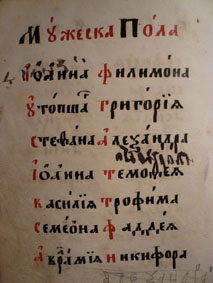 Мужеска Пола
Іѡанна Филимона
Утопша Григорїѧ
Стефана Алеѯандра
Іѡанна Тимоѳеѧ
Василїѧ Трофима
Семеѡна Фаддеѧ
Авраамїѧ Никифора